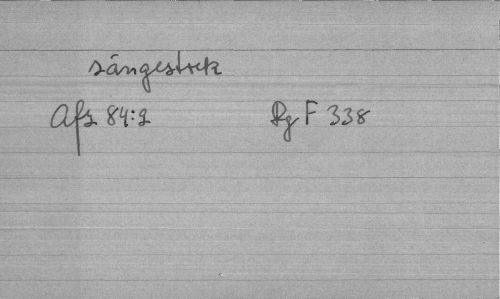 sängestrek
Afz 84:2
Rg F 338